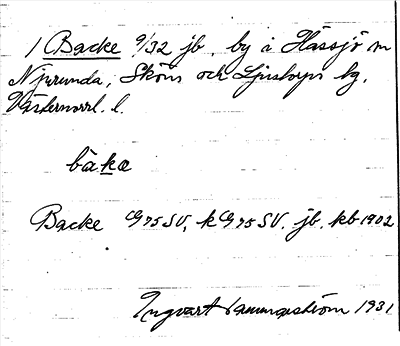 1 Backe 9/32 jb, by i Hässjö sn
Njurunda, Sköns och Ljustorps tg,
Västernorrl. l.
bàka
Backe G75SV, k G75SV. jb, kb 1902
Ingvart 1931